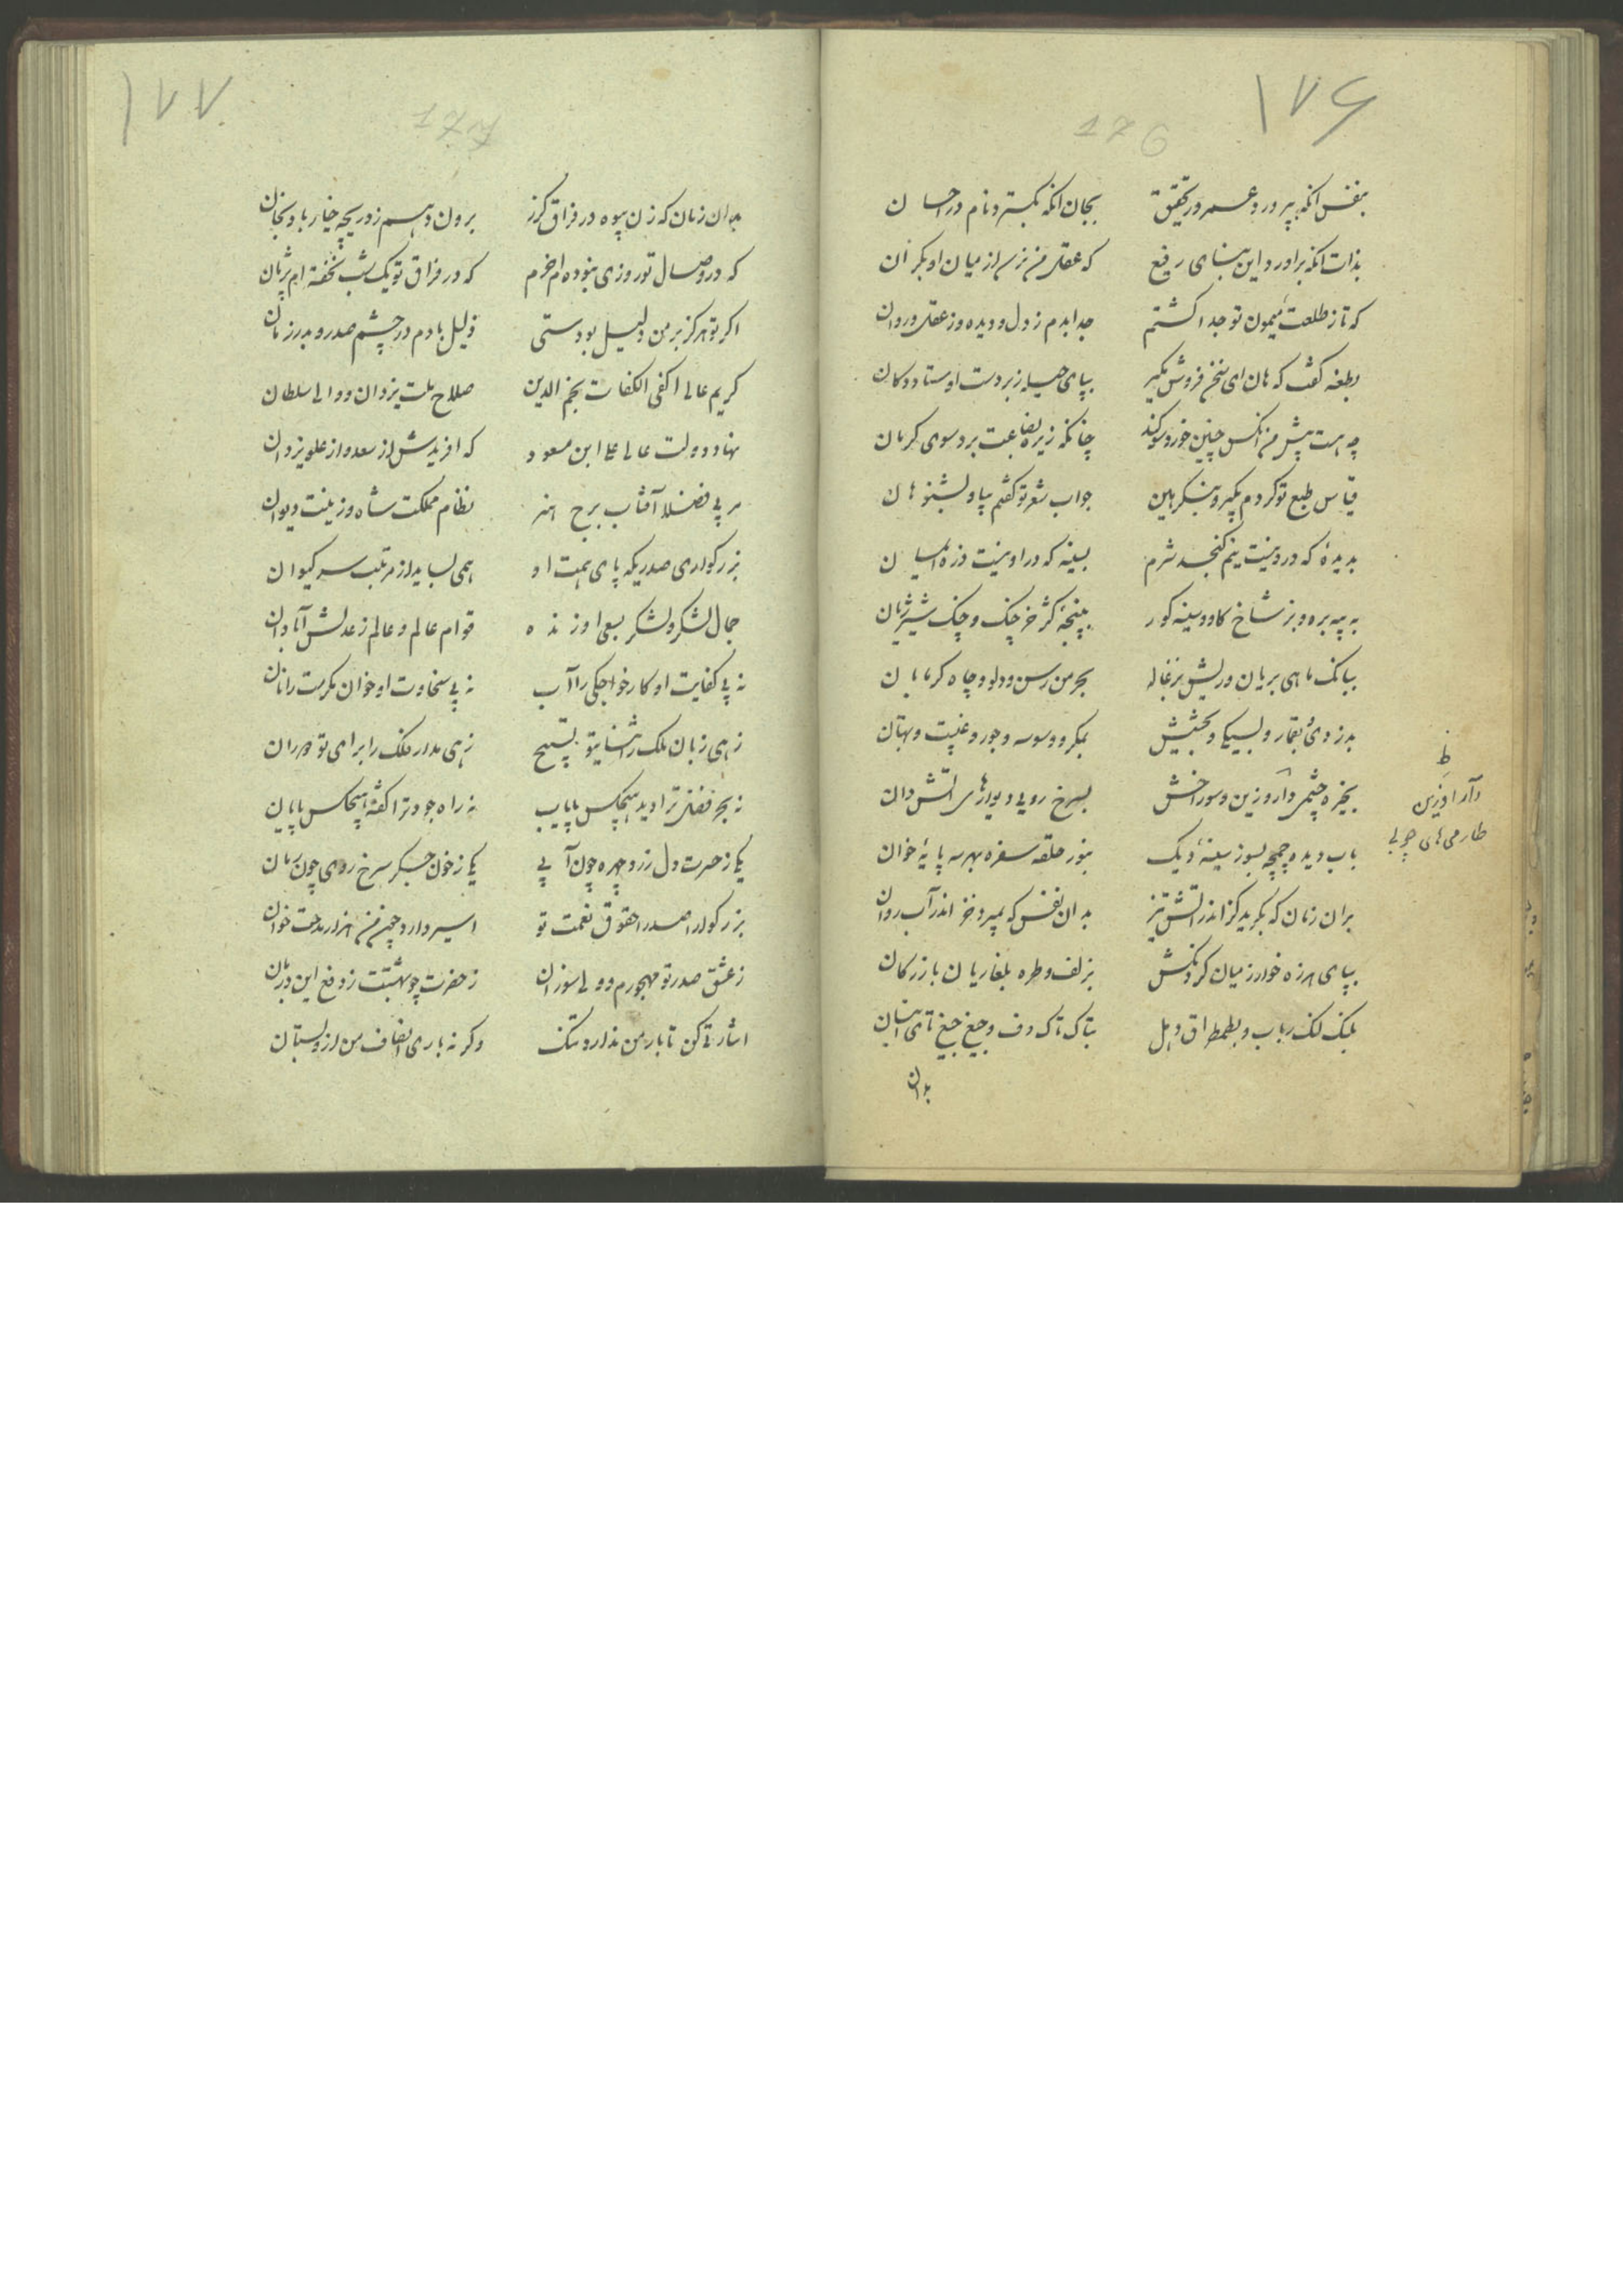 ۱۷۶
176
بنفس آنکه بپرورد عمر در تحقیق بجان آنکه بگسترد نام در احسان
بذات آنکه برآورد این بنای رفیع که عقل من نرسد از میان او بکران
که تا ز طلعت میمون تو جدا گشتم جدا بدم ز دل و دیده وز عقل و روان
بطعنه گفت که هان ای سخن فروش بگیر بپای حیله زبردست اوستاد دکان
چه هست پیش من آنکس چنین خورد سوگند چنانکه زیره بضاعت برد سوی کرمان
قیاس طبع تو کردم بگیر و بنگر هین جواب شعر تو گفتم بیا و بشنو هان
بدیدهٔ که درو نیست نیم کنجد شرم بسینه که در او نیست ذره ایمان
به پیه بره و بز شاخ گاو و سینه گور بپنجهٔ کژ خرچنگ و چنگ شیر ژیان
ببانگ ماهی بریان و ریش بزغاله بجر من رسن و دلو و چاه کرمابان
بدزدیٔ بقمار و بسیکی و بخشش بمکر و وسوسه و جور و غیبت و بهتان
بخیره چشمی دارو زین و سوراخش بسرخ رویی دیوارهای آتش دان
بآب دیده چمچه بسوز سینهٔ دیگ بنور حلقه سفره بهر سه پایهٔ خوان
بران زمان که بگرید کز اندر آتش تیز بدان نفس که بمیرد خز اندر آب روان
بپای هرزه خوار ز میان گردنکش بزلف و طره بلغاریان بازرگان
بلنگ لنگ رباب و بطمطراق دهل بتاک تاک دف و جیغ جیغ نای انبان
بدان
ظ
دار آفرین
طارمی های چوبی
۱۷۷
177
بدان زمان که زن بیوه در فراق گزر برون دهم ز دریچه خیار بادنجان
که در وصال تو روزی نبوده‌ام خرم که در فراق تو یک شب نخفته‌ام پژمان
اگر تو هرگز بر من دلیل بودستی ذلیل بادم در چشم صدر و بدر زمان
کریم عالم اکفی الکفات نجم الدین صلاح ملت یزدان و والی سلطان
بهاء دولت عالی علی ابن مسعود که آفریدش از سعد و از علو یزدان
سپهر فضل آفتاب برج هنر نظام مملکت شاه و زینت دیوان
بزرگواری صدریکه پای همت او همی بساید از مرتبت سر کیوان
جمال لشکر و لشکر بسعی او زنده قوام عالم و عالم ز عدلش آبادان
نه بی کفایت او کار خواجگی را آب نه بی سخاوت او خوان مکرمت را نان
زهی زبان ملک را ثنای تو تسبیح زهی مدار فلک را برای تو دوران
نه بحر فضل ترا دید هیچکس پایاب نه راه جود ترا گفته هیچکس پایان
یکی ز حسرت دل زرد چهره چون آبی یکی ز خون جگر سرخ روی چون رمان
بزرگوارا صدرا حقوق نعمت تو اسیر دارد چون من هزار مدحت خوان
ز عشق صدر تو مهجورم و ولی سوزان ز حضرت چو بهشتت ز دفع این دربان
اشارتی کن تا بار من ندارد تنگ وگرنه باری انصاف من ازو بستان